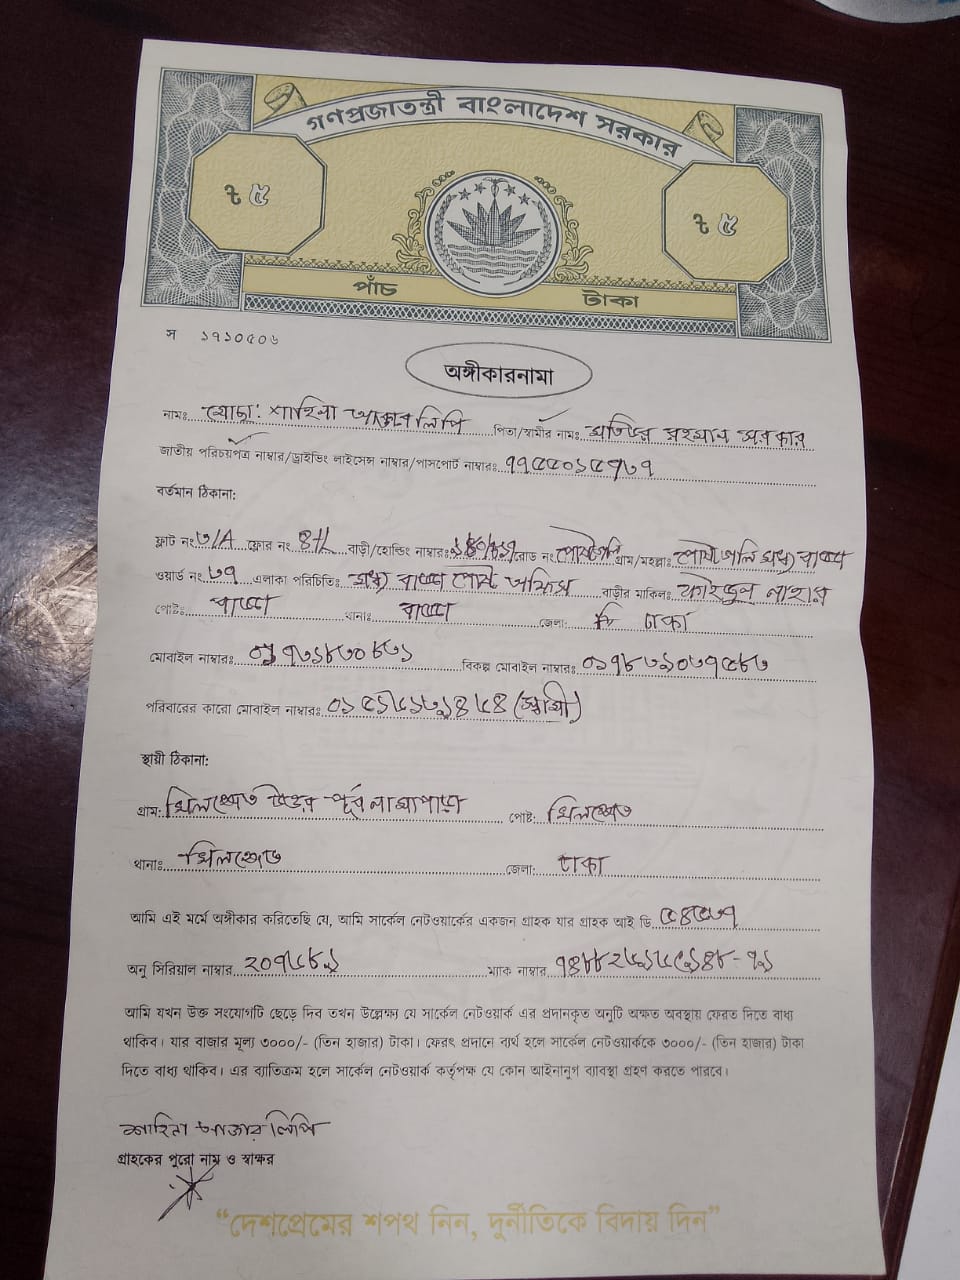 গণপ্রজাতন্ত্রী বাংলাদেশ সরকার
৳ ৫
৳ ৫
পাঁচ টাকা
স ১৭১০৫০৬
অঙ্গীকারনামা
নামঃ মোছা: শাহিনা আক্তার লিপি পিতা/স্বামীর নামঃ মতিউর রহমান সরকার
জাতীয় পরিচয়পত্র নাম্বার/ড্রাইভিং লাইসেন্স নাম্বার/পাসপোর্ট নাম্বারঃ
বর্তমান ঠিকানা:
ফ্লাট নং ৩/A ফ্লোর নং 8th বাড়ী/হোল্ডিং নাম্বারঃ রোড নং গ্রাম/মহল্লাঃ পোষ্ট অলি মধ্য বাড্ডা
ওয়ার্ড নং ৩৭ এলাকা পরিচিতিঃ মধ্য বাড্ডা পোষ্ট অফিস বাড়ীর মালিকঃ নাহার
পোষ্টঃ বাড্ডা থানাঃ বাড্ডা জেলা: ঢাকা
মোবাইল নাম্বারঃ বিকল্প মোবাইল নাম্বারঃ
পরিবারের কারো মোবাইল নাম্বারঃ (স্বামী)
স্থায়ী ঠিকানা:
গ্রাম: খিলক্ষেত উত্তর পূর্ব নামাপাড়া পোষ্ট: খিলক্ষেত
থানাঃ খিলক্ষেত জেলা: ঢাকা
আমি এই মর্মে অঙ্গীকার করিতেছি যে, আমি সার্কেল নেটওয়ার্কের একজন গ্রাহক যার গ্রাহক আই ডি
অনু সিরিয়াল নাম্বার ম্যাক নাম্বার
আমি যখন উক্ত সংযোগটি ছেড়ে দিব তখন উল্লেক্ষ্য যে সার্কেল নেটওয়ার্ক এর প্রদানকৃত অনুটি অক্ষত অবস্থায় ফেরত দিতে বাধ্য
থাকিব। যার বাজার মূল্য ৩০০০/- (তিন হাজার) টাকা। ফেরৎ প্রদানে ব্যর্থ হলে সার্কেল নেটওয়ার্ককে ৩০০০/- (তিন হাজার) টাকা
দিতে বাধ্য থাকিব। এর ব্যাতিক্রম হলে সার্কেল নেটওয়ার্ক কর্তৃপক্ষ যে কোন আইনানুগ ব্যাবস্থা গ্রহণ করতে পারবে।
শাহিনা আক্তার লিপি
গ্রাহকের পুরো নাম ও স্বাক্ষর
“দেশপ্রেমের শপথ নিন, দুর্নীতিকে বিদায় দিন”